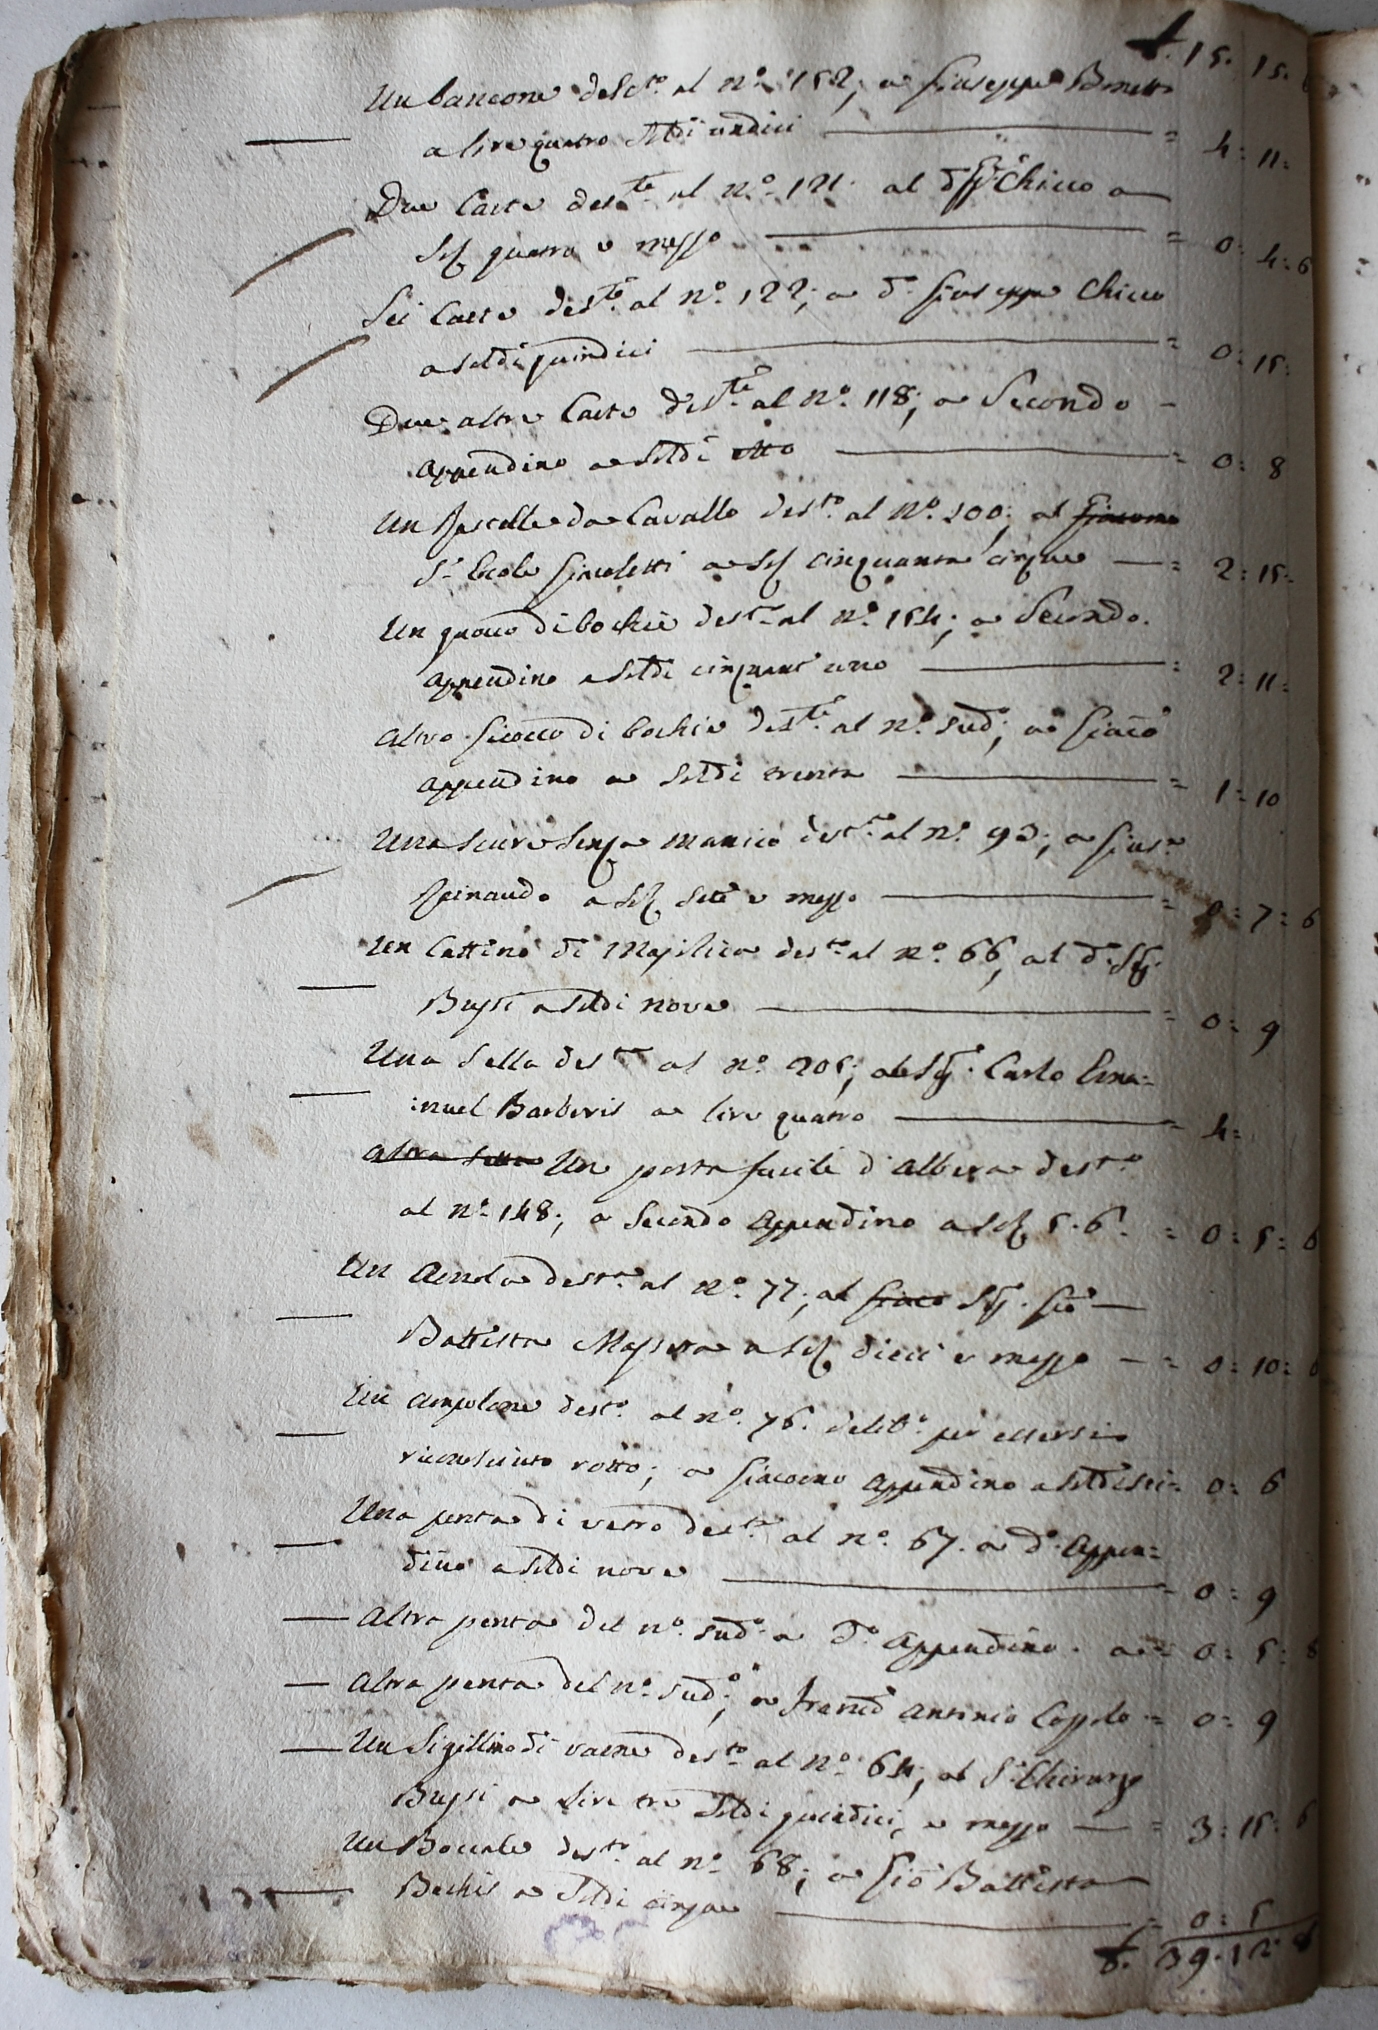 £. 15. 15. 6
Un bancone des.to al n.o 152, a Giuseppe Bonetto
a lire quatro soldi undici = 4: 11:
Due Carte des.te al n.o 121. al d.o Sig.r Chicco a
S.di quatro e mezzo = 0: 4: 6
Sei Carte des.te al n.o 122; a d.o Giuseppe Chicco
a soldi quindici = 0: 15:
Due altre Carte des.te al n.o 118; a Secondo
Appendino a soldi otto = 0: 8
Un da Cavallo des.to al n.o 200; al Giacomo
S.r a S.di cinquanta cinque = 2: 15:
Un di bochie des.to al n.o 154; a Secondo
Appendino a soldi cinquant'uno = 2: 11:
Altro di bochie des.te al n.o sud.o; a Giaco
Appendino a soldi trenta = 1: 10
Una scure senza manico des.ta al n.o 93; a Gius.e
Rinaudo a S.di sete e mezzo = 0: 7: 6
Un Cattino di Majolica des.to al n.o 66, al d.o Sig.r
Bussi a soldi nove = 0: 9
Una Sella des.ta al n.o 205; al Sig.r Carlo Ema=
:nuel Barberis a lire quatro = 4:
altra sella Un porta fucile d'albera des.to
al n.o 148; a Secondo Appendino a S.di 5. 6. = 0: 5: 6
Un Amola des.ta al n.o 77; al Giaco Sig.r Gio
Battista Massera a S.di dieci e mezzo = 0: 10: 6
Un ampolone des.to al n.o 76. delib.o per essersi
riconosciuto rotto; a Giacomo Appendino a soldi sei = 0: 6
Una penta di vetro des.ta al n.o 67. a d.o Appen=
dino a soldi nove = 0: 9
Altra penta del n.o sud.o a d.o Appendino. a = 0: 5: 6
Altra penta del n.o sud.o; a Franc.o Antonio Coppelo = 0: 9
Un Sigillino di rame des.to al n.o 64; al S.r Chirurgo
Bussi a lire tre soldi quindici, e mezzo = 3: 15: 6
Un Boccale des.to al n.o 68; a Gio Battista
Bechis a soldi cinque = 0: 5
£. 39. 12. 6